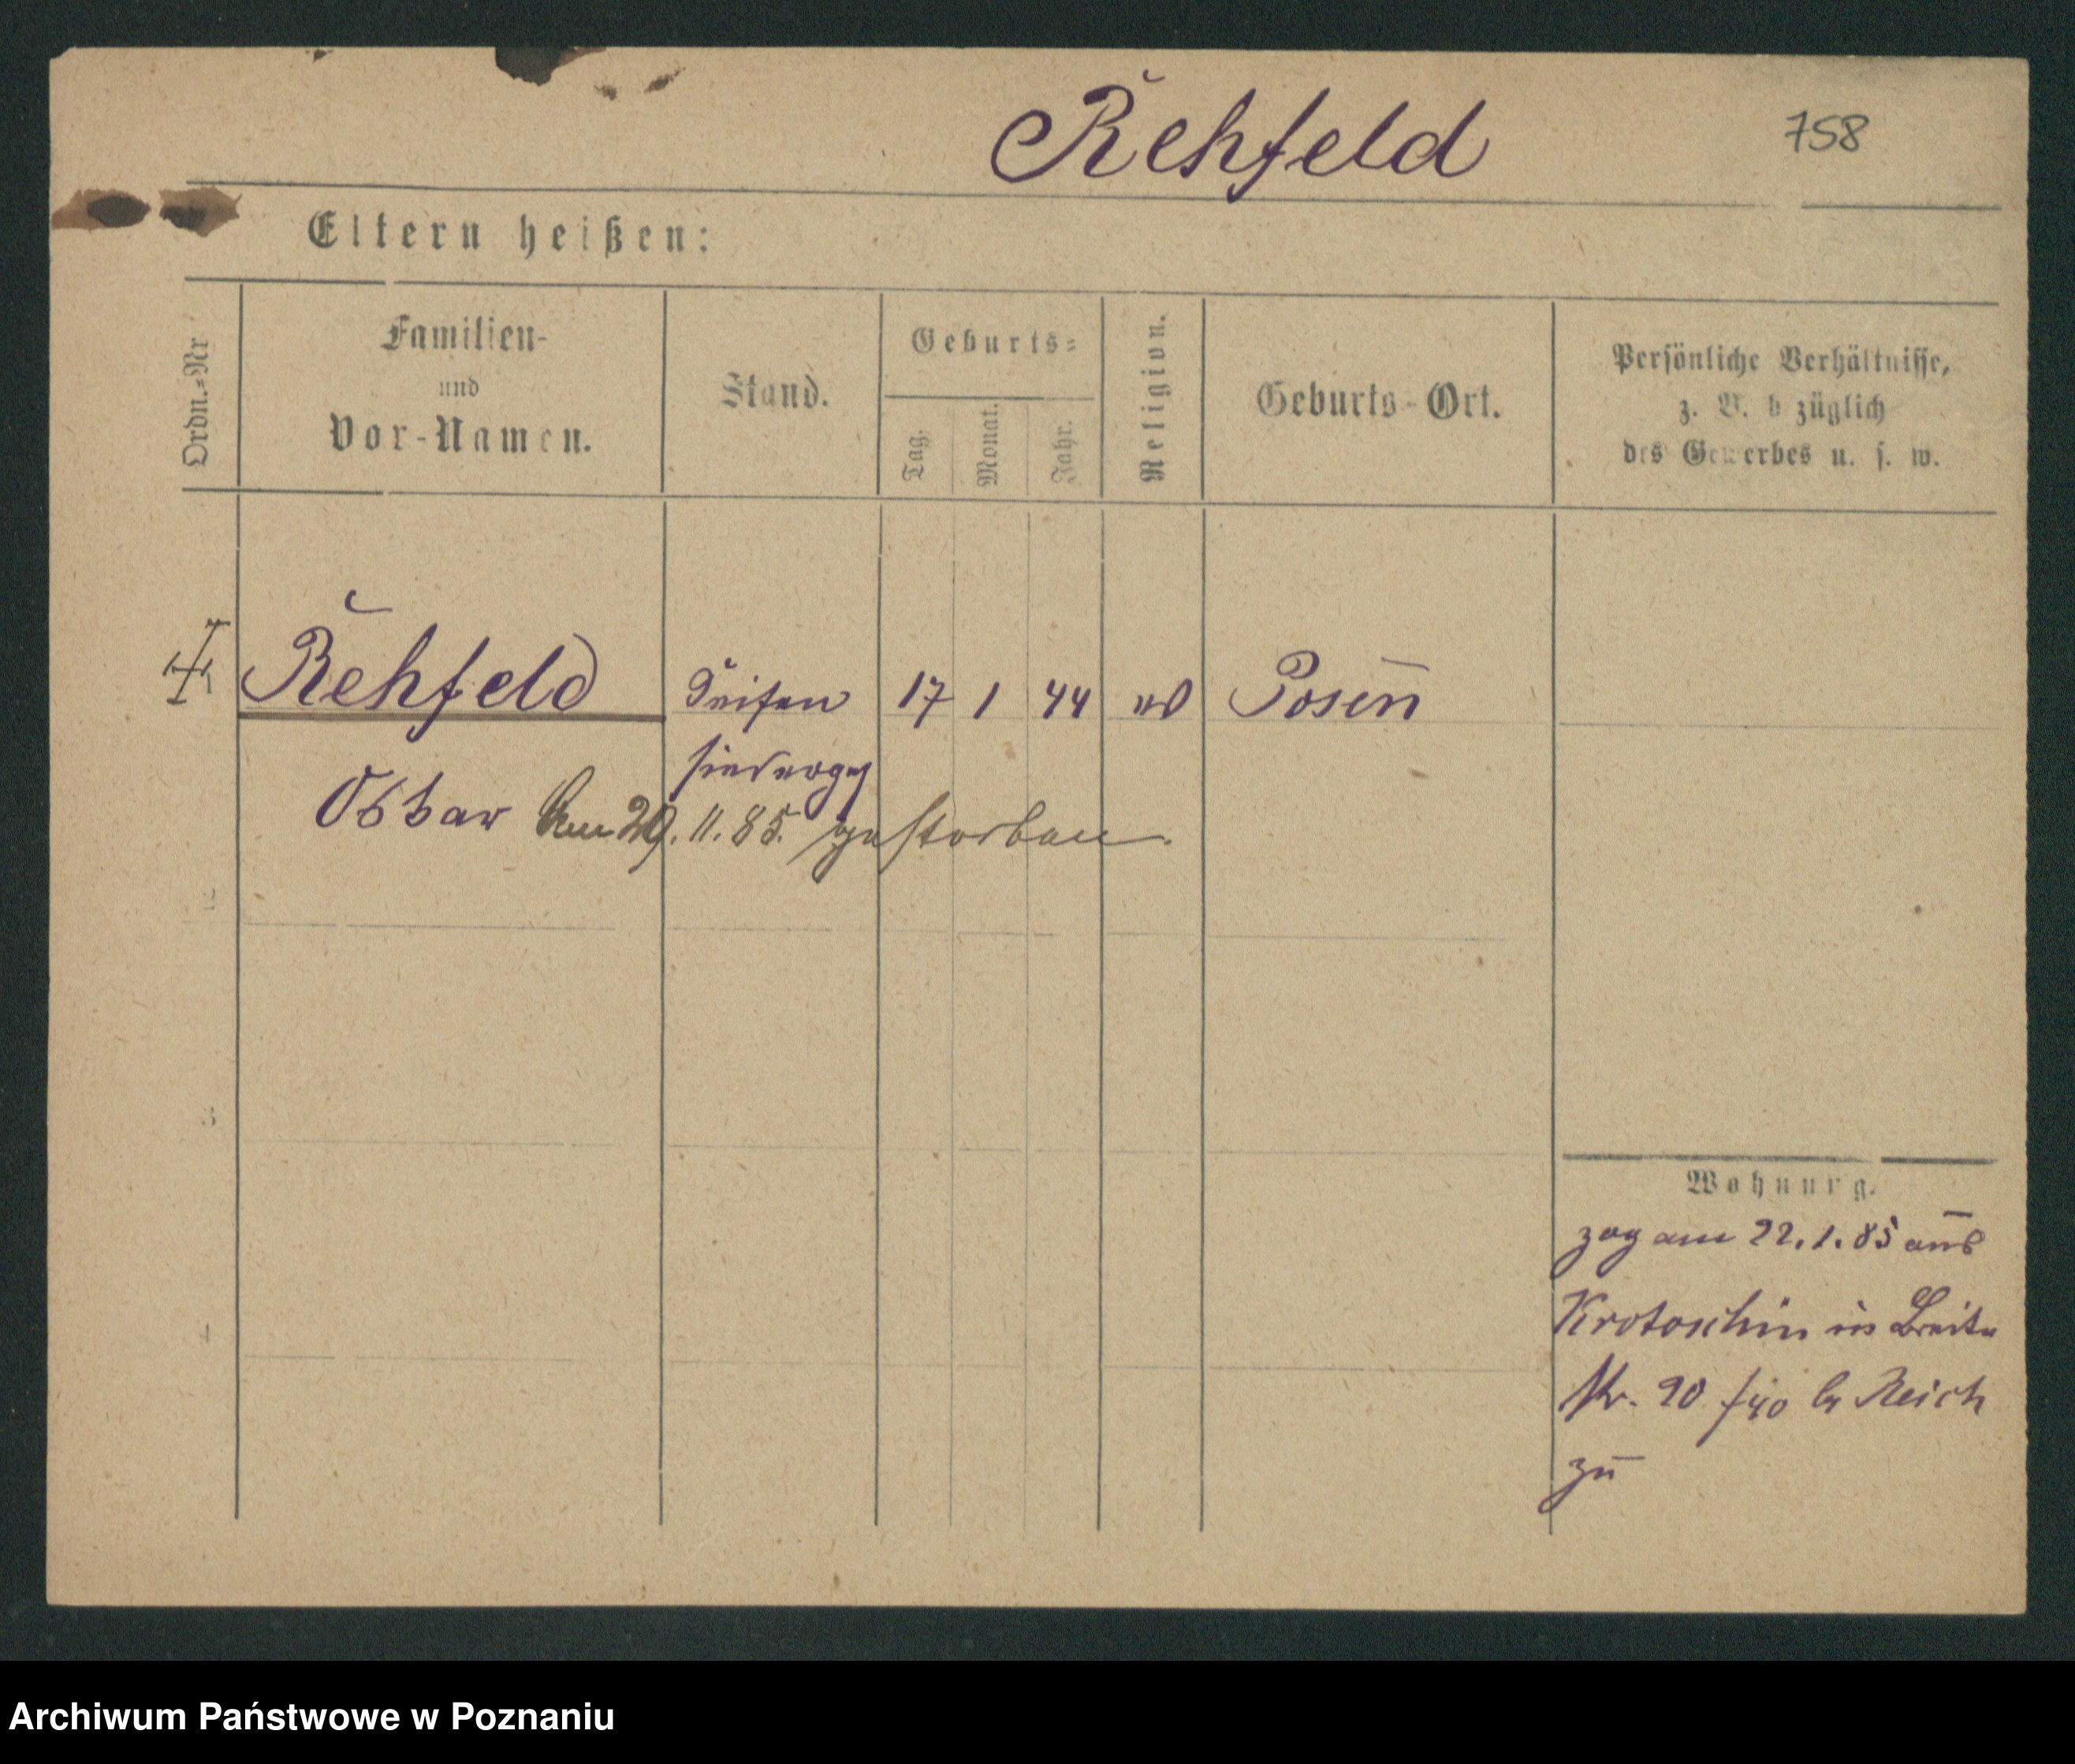 Rehfeld
758
Eltern heißen:
Ordn.-Nr
Familien-
und
Vor-Namen.
Stand.
Geburts-
Tag.
Monat.
Jahr.
Religion.
Geburts-Ort.
Persönliche Verhältnisse,
z. B. b züglich
des Gewerbes u. s. w.
Rehfeld
Seifen 17 1 44
Posen
sieder
Am 29. 11. 85. gestorben
3
Wohnung.
zog am 22. 1. 85 aus
Krotoschin in Breite
Str. 20 Reich
zu
Archiwum Państwowe w Poznaniu